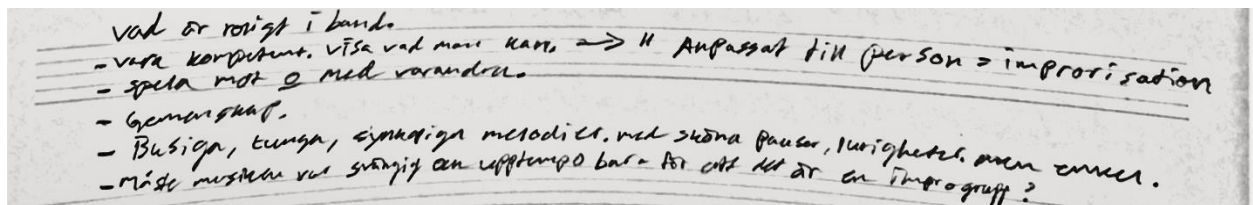 vad är roligt i band.
- vara kompetent. visa vad man kan. => " Anpassat till person = improvisation
- spela mot o med varandra.
- Gemenskap.
- Busiga, tunga, synkopiga melodier. med sköna pauser, lurigheter. men enkel.
- Måste musiken var svängig och upptempo bara för att det är en improgrupp?